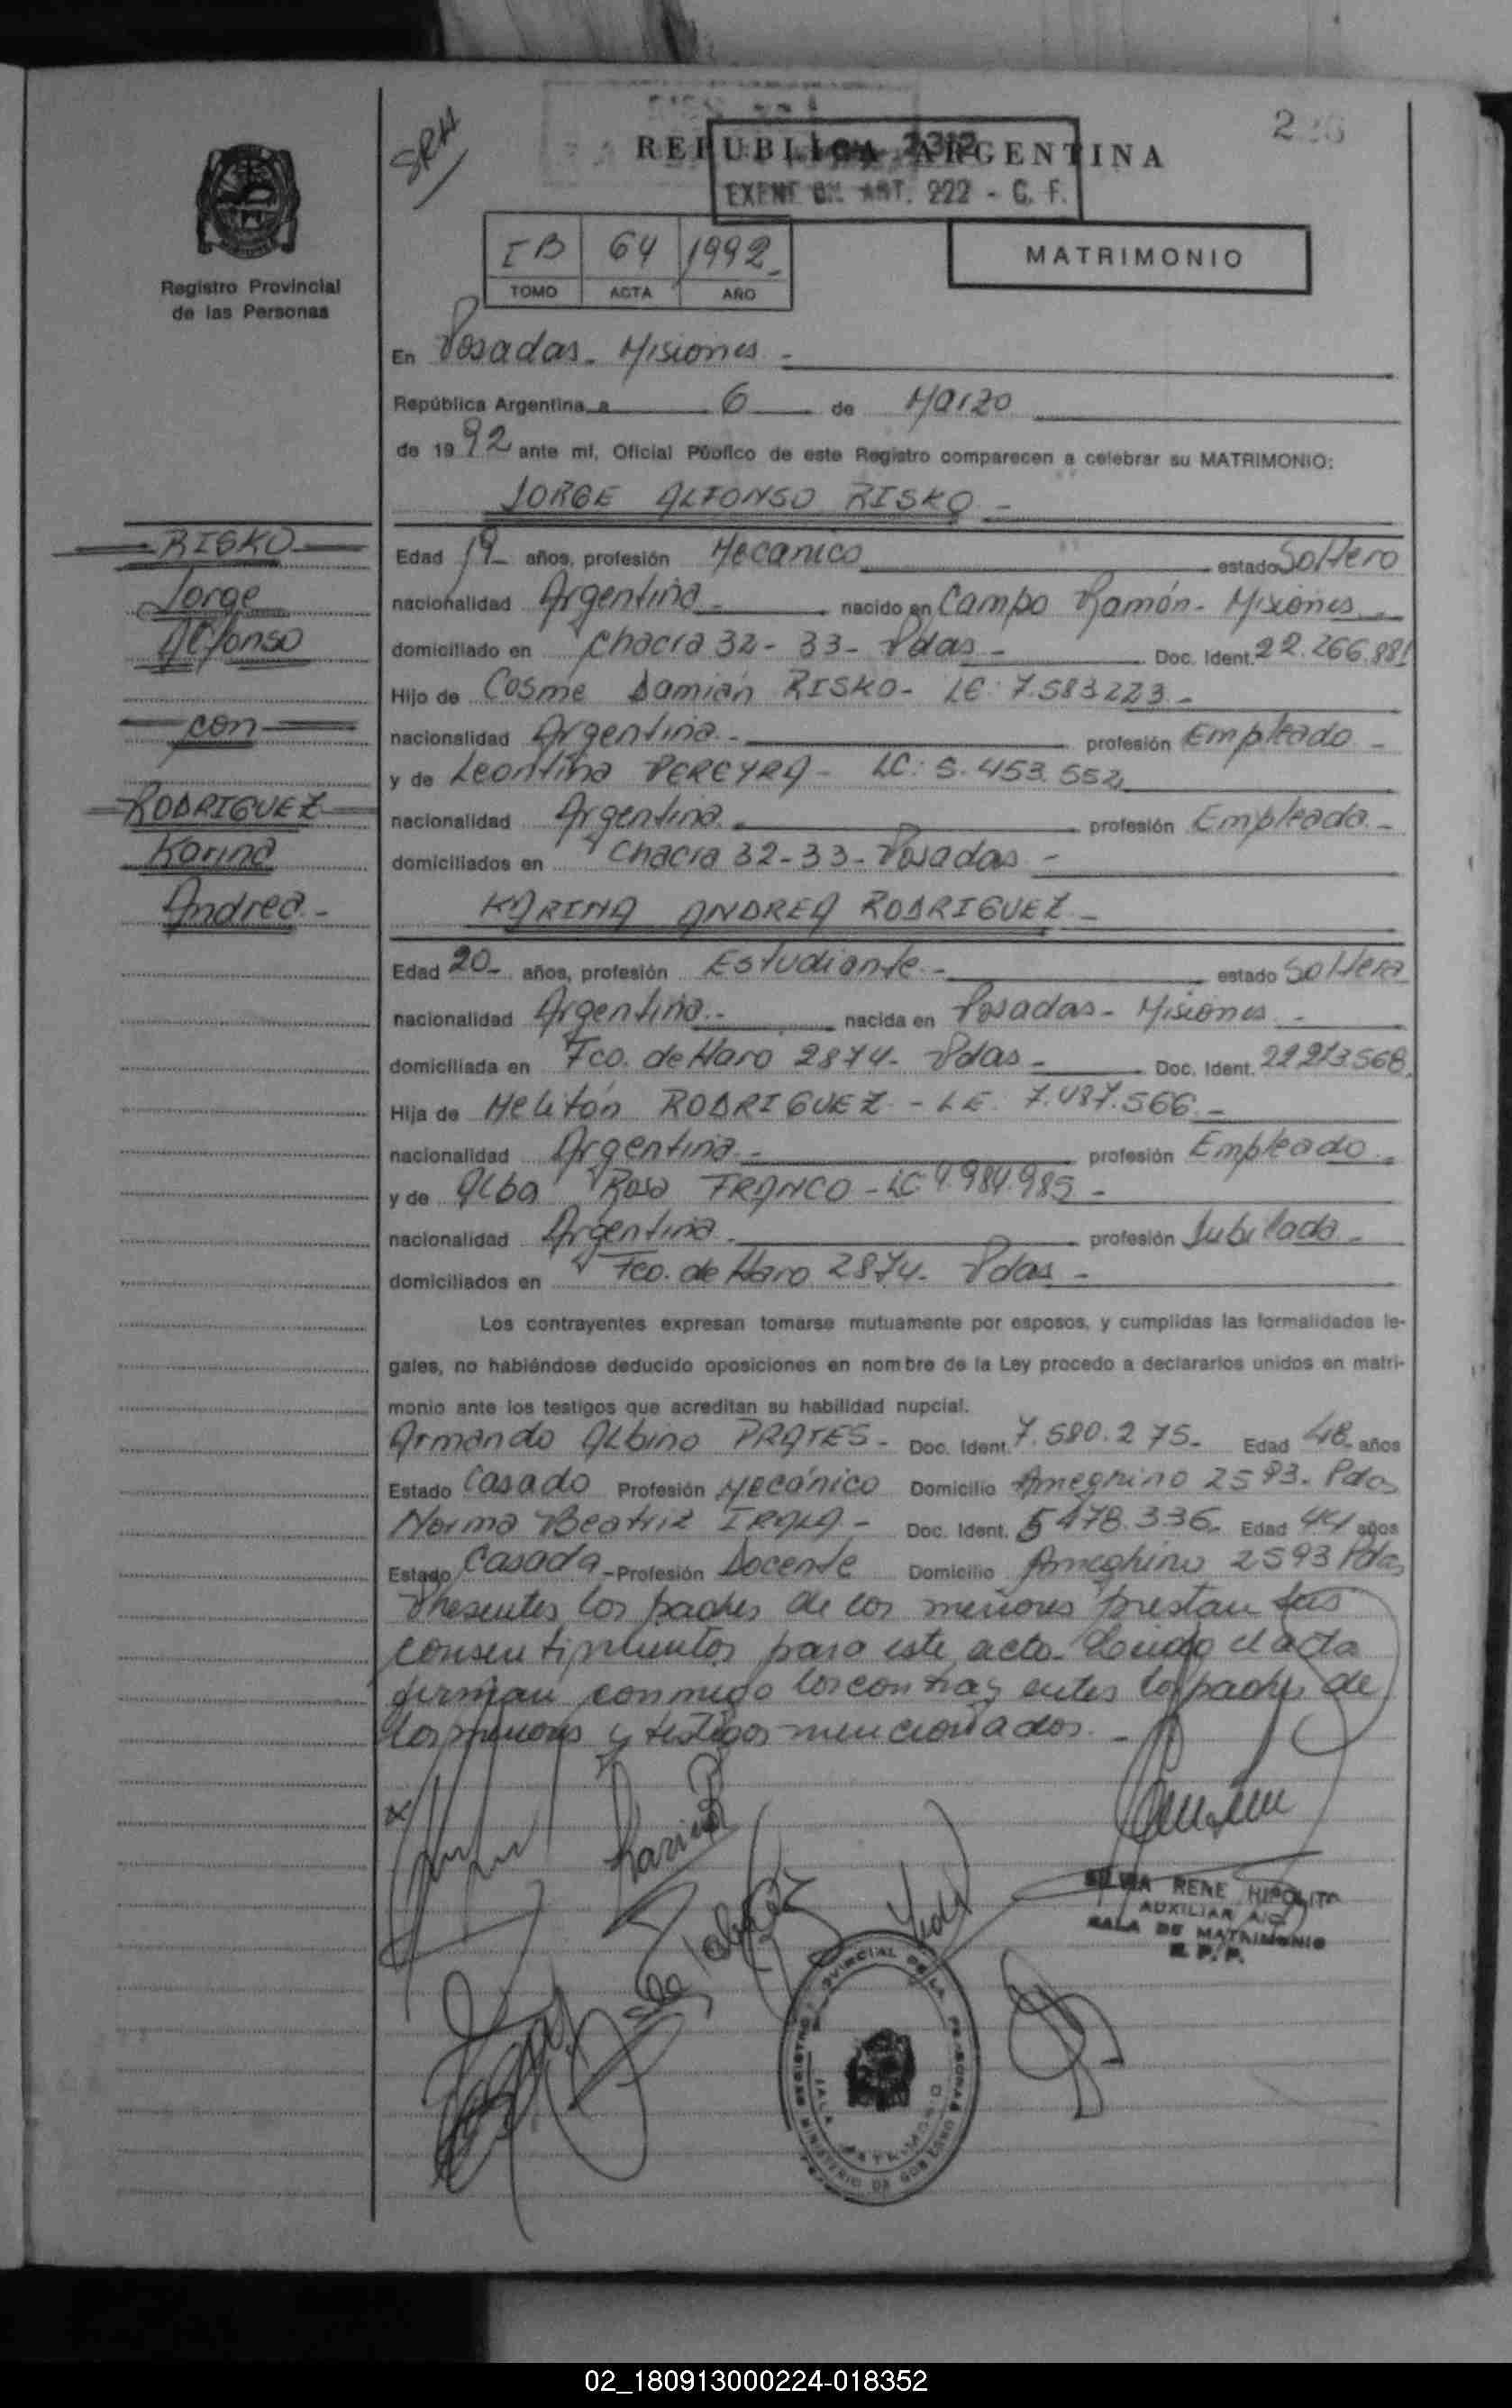 SRH
REPUBLICA ARGENTINA
EXENT ART. 222 - C. F.
Registro Provincial
de las Personas
IB 64 1992
TOMO ACTA AÑO
MATRIMONIO
En Posadas - Misiones -
República Argentina a 6 de Marzo
de 1992 ante mí, Oficial Público de este Registro comparecen a celebrar su MATRIMONIO:
JORGE ALFONSO RISKO -
RISKO
Jorge
Alfonso
con
RODRIGUEZ
Karina
Andrea -
Edad 19 años, profesión Mecanico estado Soltero
nacionalidad Argentina - nacido en Campo Ramón - Misiones -
domiciliado en Chacra 32 - 33 - Pdas - Doc. Ident. 22.266.881
Hijo de Cosme Damián RISKO - LE: 7.583.223 -
nacionalidad Argentina - profesión Empleado -
y de Leontina PEREYRA - LC: 5.453.552
nacionalidad Argentina profesión Empleada -
domiciliados en Chacra 32-33 - Posadas -
KARINA ANDREA RODRIGUEZ -
Edad 20 - años, profesión Estudiante - estado Soltera
nacionalidad Argentina - nacida en Posadas - Misiones -
domiciliada en Fco. de Haro 2874 - Pdas - Doc. Ident. 22.273.568
Hija de Melitón RODRIGUEZ - LE. 7.487.566 -
nacionalidad Argentina - profesión Empleado -
y de Alba Rosa FRANCO - LC 4.984.985 -
nacionalidad Argentina - profesión Jubilada -
domiciliados en Fco. de Haro 2874 - Pdas -
Los contrayentes expresan tomarse mutuamente por esposos, y cumplidas las formalidades le-
gales, no habiéndose deducido oposiciones en nombre de la Ley procedo a declararlos unidos en matri-
monio ante los testigos que acreditan su habilidad nupcial.
Armando Albino PRATES - Doc. Ident. 7.580.275 - Edad 48 años
Estado Casado Profesión Mecánico Domicilio Ameghino 2593 - Pdas
Norma Beatriz IRALA - Doc. Ident. 5.478.336 - Edad 44 años
Estado Casada - Profesión Docente Domicilio Ameghino 2593 Pdas
Presentes los padres de los menores prestan sus
consentimientos para este acto. Leida el acta
firman conmigo los contrayentes los padres de
los menores y testigos mencionados. -
Karina
SILVIA RENE HIPOLITO
AUXILIAR A/C
SALA DE MATRIMONIO
R. P. P.
REGISTRO PROVINCIAL DE LAS PERSONAS
SALA MATRIMONIO
MINISTERIO DE GOBIERNO
02_180913000224-018352